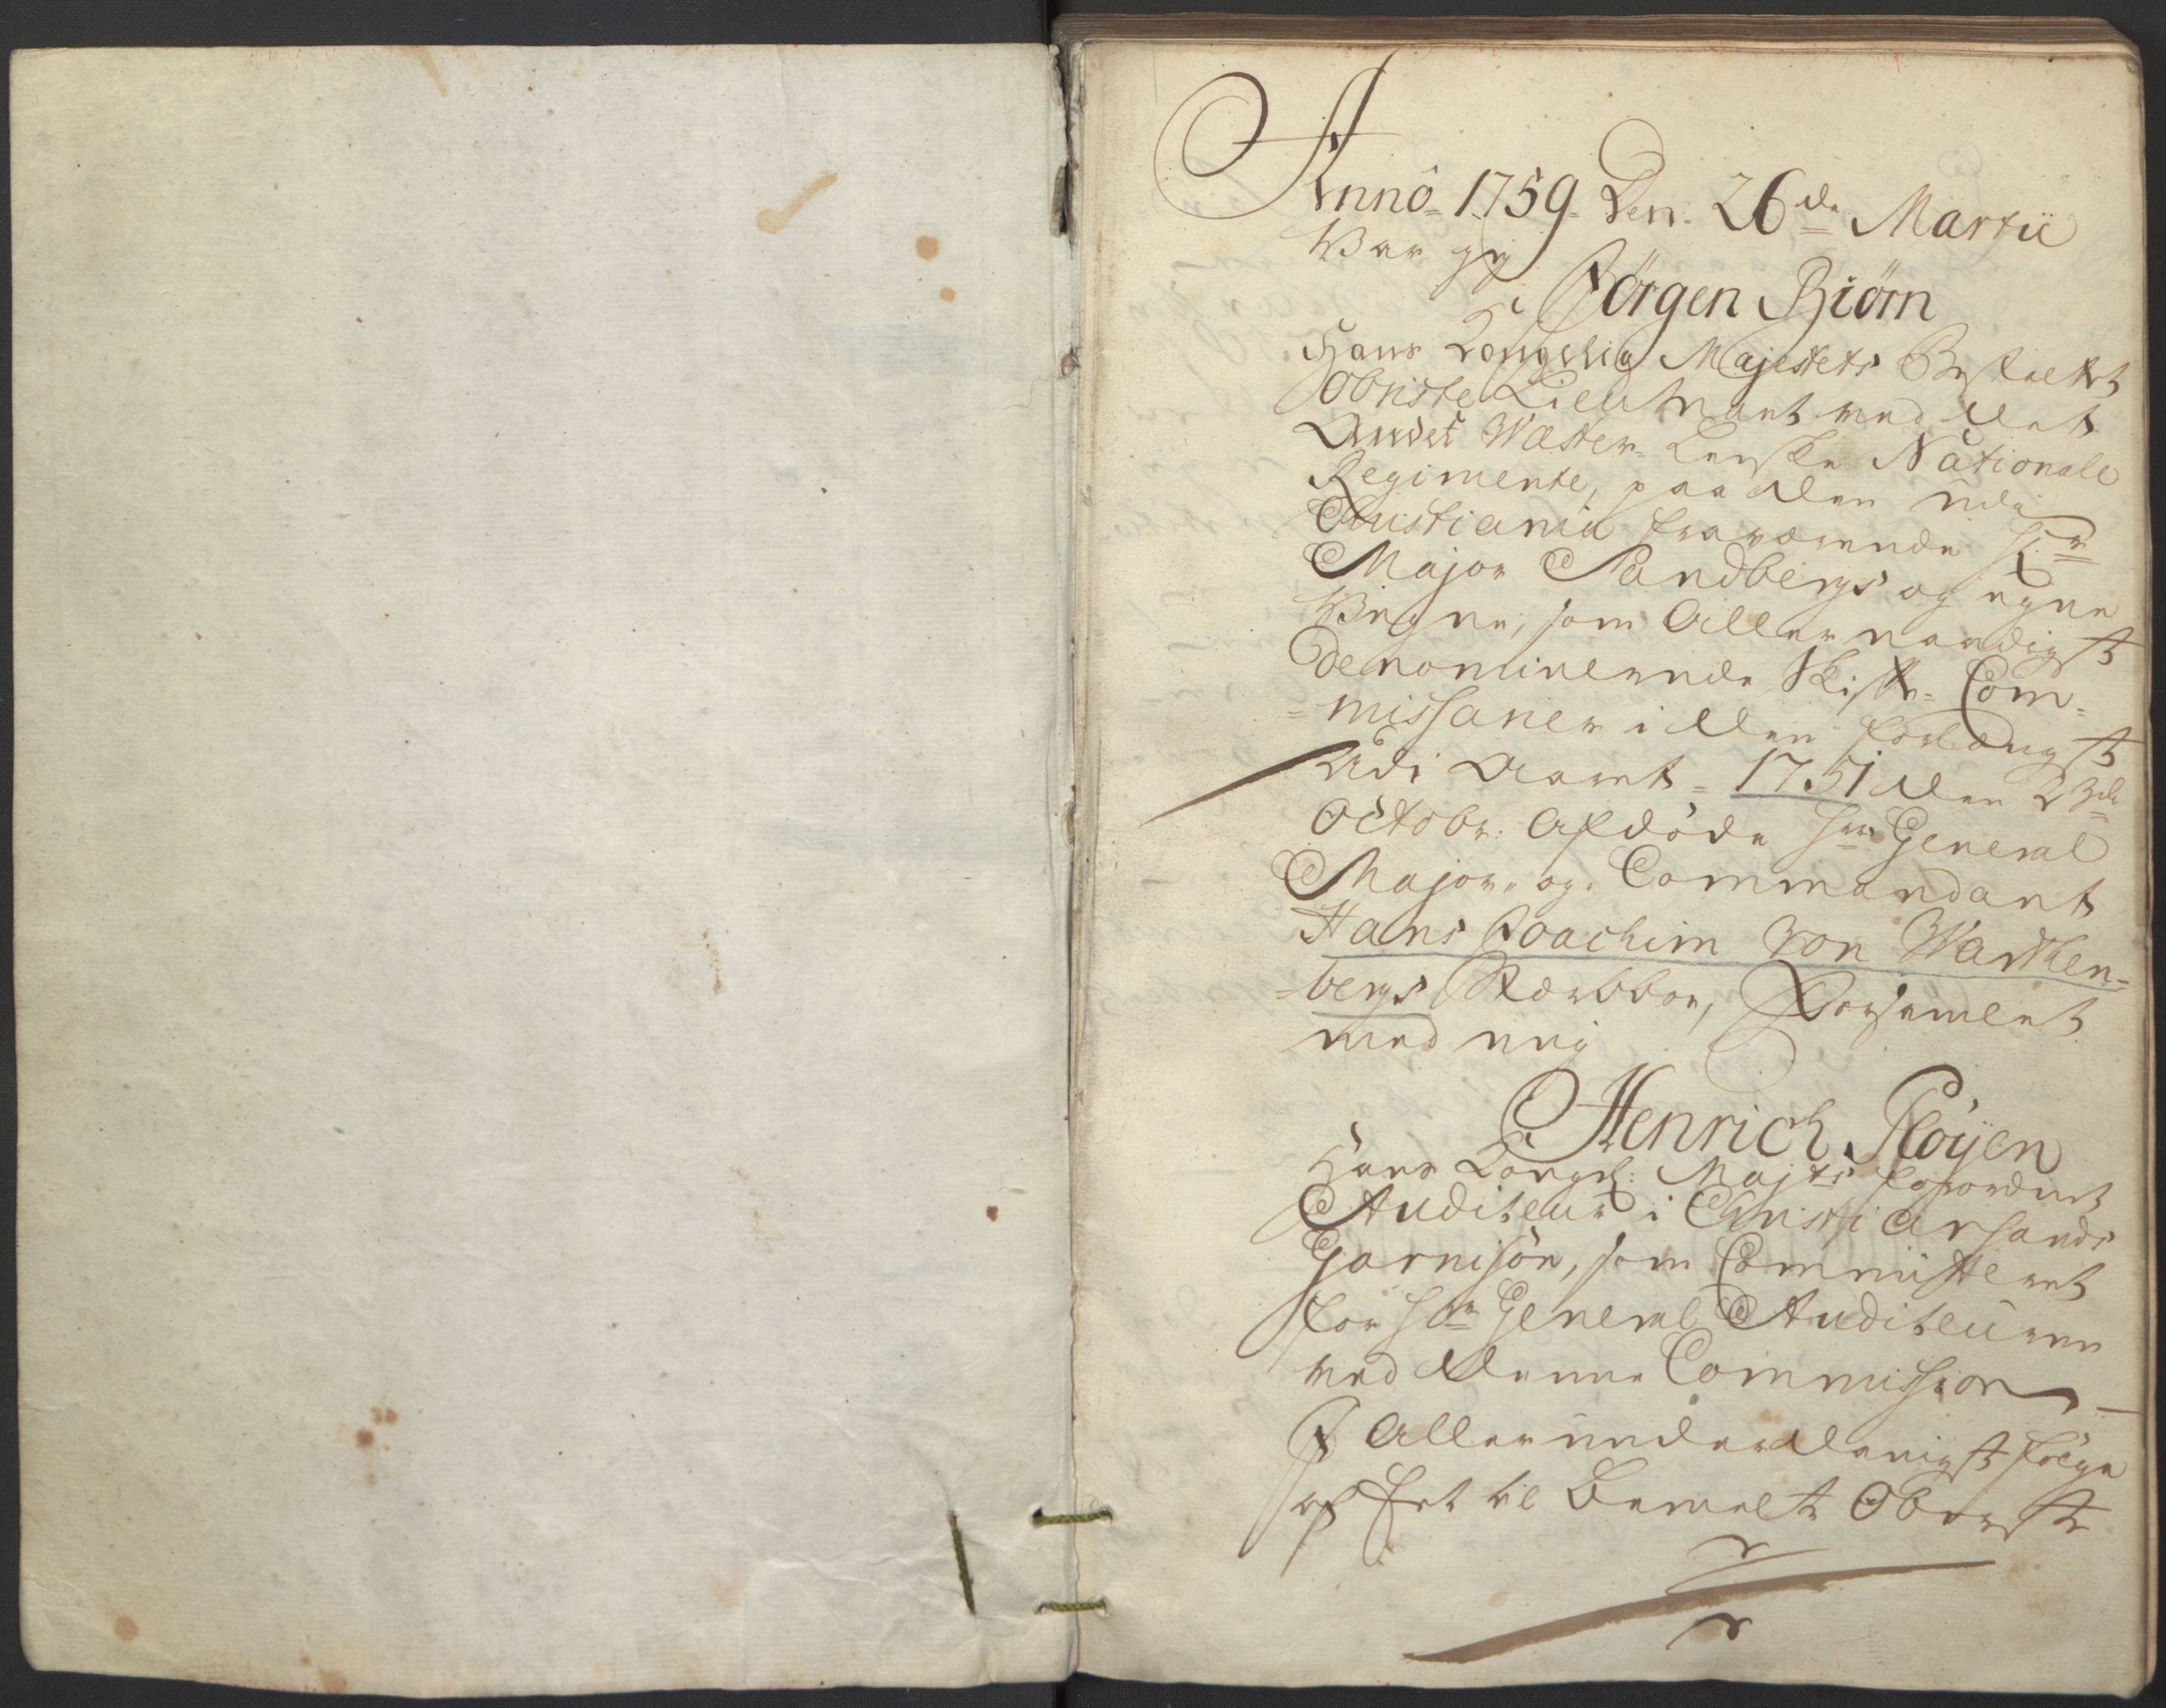 Anno 1759 Den 26de Martii
Var jeg
Jörgen Biörn
Hans Kongelig Majestets Bestaelter
Obriste Lieutnant ved det
Andet Wæster-Lenske Nationale
Regimente, paa den udi
Christiania fraværende Hr
Major Sandbergs og egne
Vegne, som Allernaadigst
denominerede Skifte-Com-
-missarier i den forlængst
Udi Aaret 1751 den 23de
Octobr: Afdøde Hr General
Major og Commandant
Hans Joachim von Warthen-
-bergs Stærbboe, Forsamlet
med mig
Henrich Pløÿen
Hans Kongel: Majts forordnet
Auditeur i Christiansands
Garnison, som Committeret
for Hr General Auditeuren
ved denne Commission
I Allerunderdanigst følge
af Het til Bemelte Oberste